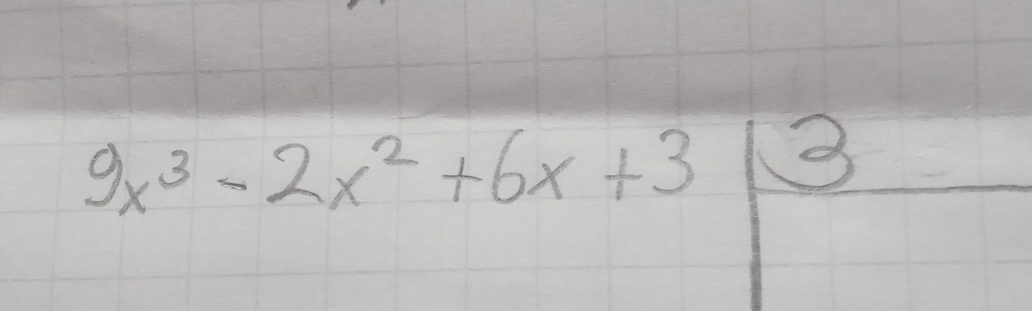 9x³ - 2x² + 6x + 3 | 3